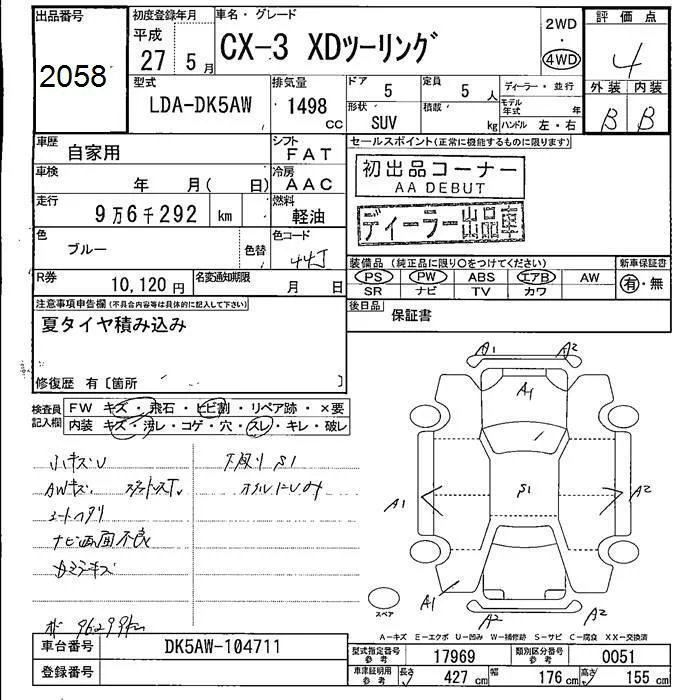 出品番号
2058
初度登録年月
平成
27年 5月
車名・グレード
CX-3 XDツーリング
2WD
・
4WD
評価点
4
外装 内装
B B
型式
LDA-DK5AW
排気量
1498
CC
ドア
5
定員
5人
形状
SUV
積載
kg
ディーラー・並行
モデル年式
年
ハンドル 左・右
車歴
自家用
シフト
FAT
車検
年 月( 日)
冷房
AAC
走行
9万6千292 km
燃料
軽油
色
ブルー
色替
色コード
44J
R券
10,120円
名変通知期限
月 日
セールスポイント(正常に機能するものに限ります)
初出品コーナー
AA DEBUT
ディーラー出品車
装備品(純正品に限り○をつけてください)
新車保証書
PS PW ABS エアB AW
SR ナビ TV カワ
有・無
後日品
保証書
注意事項申告欄(不具合内容等は具体的に記入して下さい)
夏タイヤ積み込み
修復歴 有〔箇所 〕
検査員
記入欄
FW キズ・飛石・ヒビ割・リペア跡・×要
内装 キズ・汚レ・コゲ・穴・スレ・キレ・破レ
小キズU
下廻りS1
AWキズ
ナビ画面不良
A1 A2
A1
A1 S1 A2
A1 A2 A2
スペア
A-キズ E-エクボ U-凹み W-補修跡 S-サビ C-腐食 XX-交換済
車台番号
DK5AW-104711
登録番号
型式指定番号
参考
17969
類別区分番号
参考
0051
車庫証明用
参考
長さ
427 cm
幅
176 cm
高さ
155 cm